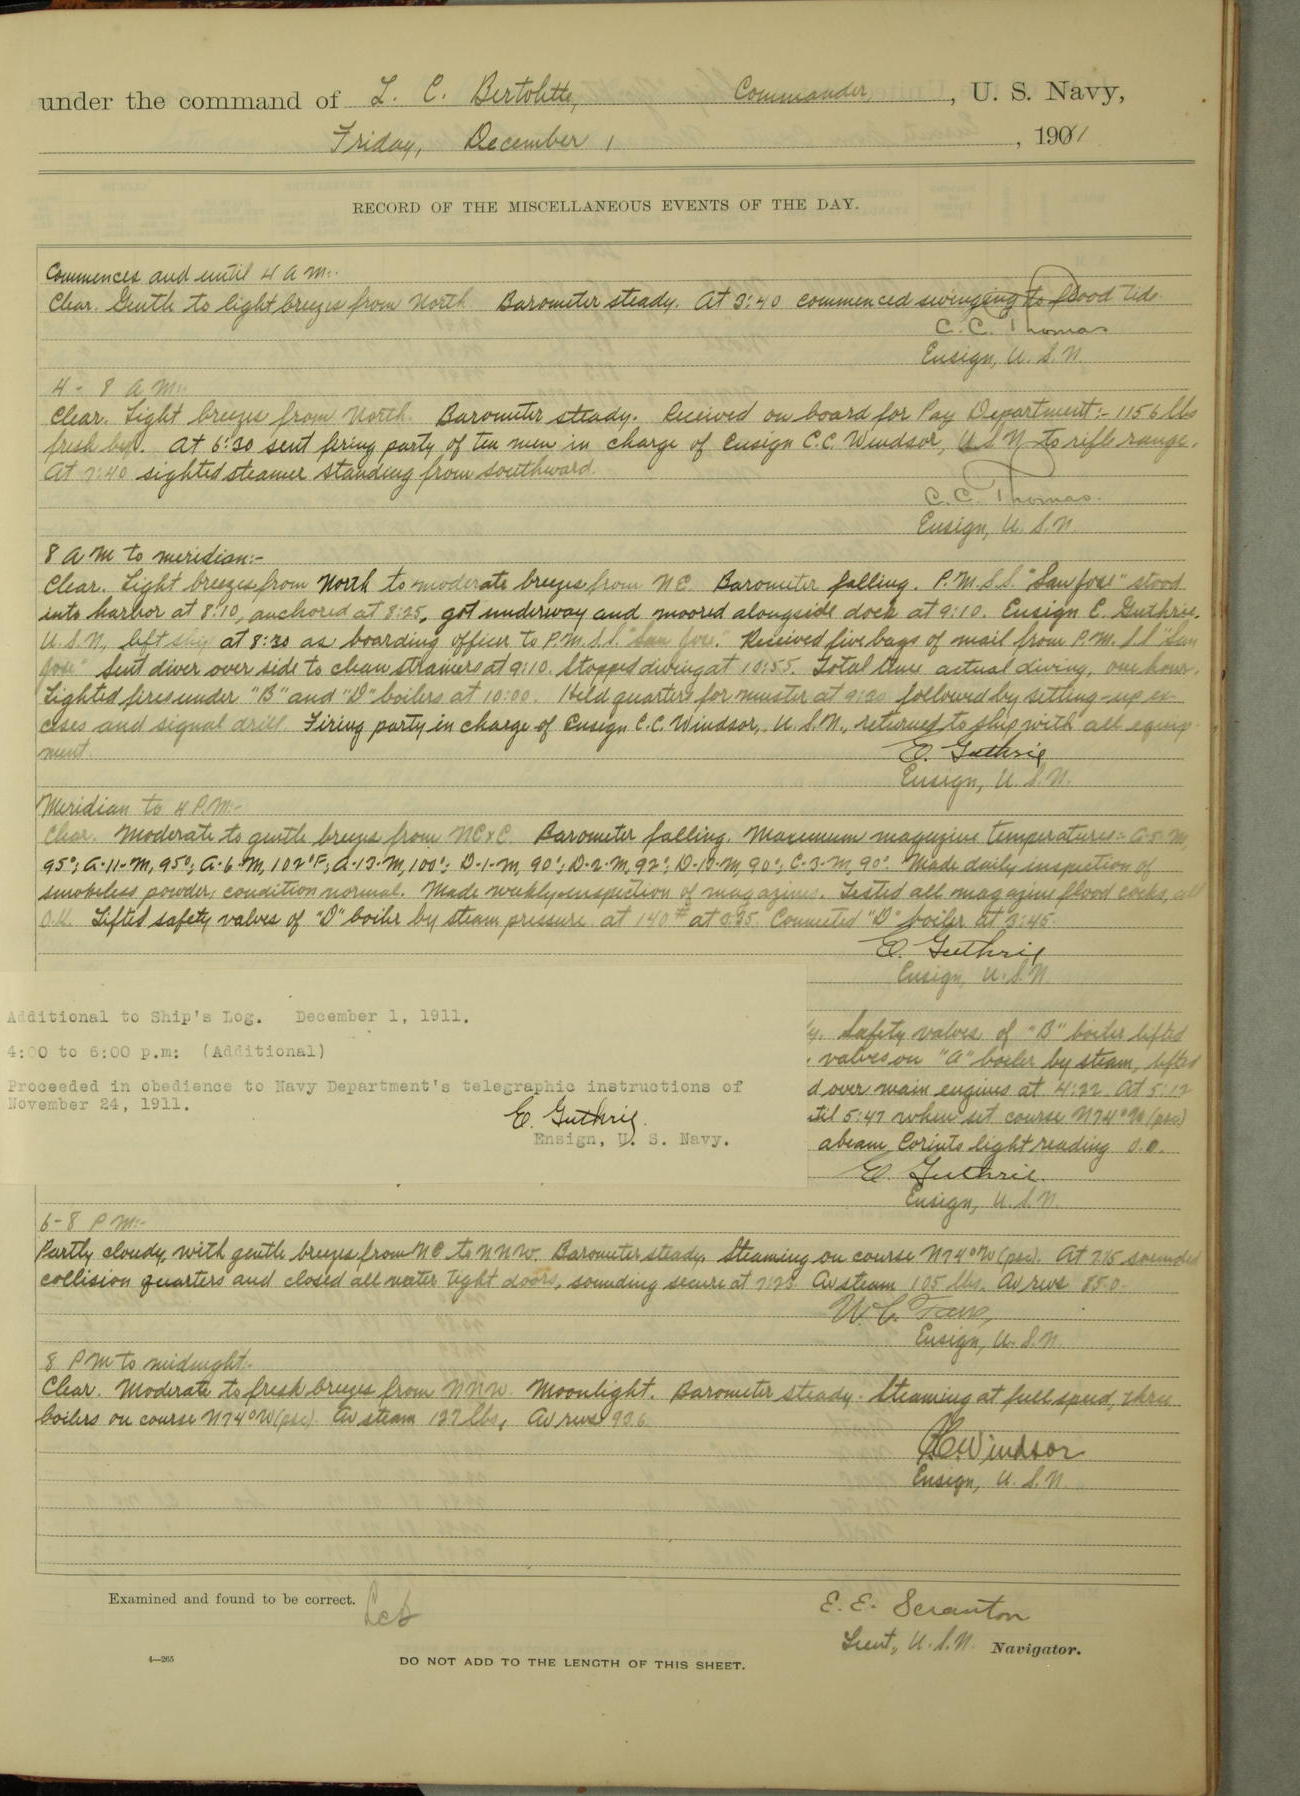 under the command of L. C. Bertolette, Commander, U. S. Navy,
Friday, December 1, 1911
RECORD OF THE MISCELLANEOUS EVENTS OF THE DAY.
Commences and until 4 A M:-
Clear. Gentle to light breezes from North Barometer steady. At 3:40 commenced swinging to flood tide.
C. C. Thomas
Ensign, U. S. N.
4 - 8 A M:-
Clear. Light breezes from North. Barometer steady. Received on board for Pay Department:- 1156 lbs
fresh beef. At 6:30 sent firing party of ten men in charge of Ensign C.C. Windsor, U.S.N. to rifle range.
At 7:40 sighted steamer standing from southward.
C. C. Thomas.
Ensign, U. S. N.
8 A M to meridian:-
Clear. Light breezes from North to moderate breezes from NE. Barometer falling. P.M.S.S. "San Jose" stood
into harbor at 8:10, anchored at 8:25, got underway and moored alongside dock at 9:10. Ensign E. Guthrie,
U.S.N., left ship at 8:20 as boarding officer to P.M.S.S. "San Jose". Received five bags of mail from P.M.S.S. "San
Jose" Sent diver over side to clean strainers at 9:10. Stopped diving at 10:55. Total time actual diving, one hour.
Lighted fires under "B" and "D" boilers at 10:00. Held quarters for muster at 9:20 followed by setting-up ex-
cises and signal drill. Firing party in charge of Ensign C.C. Windsor, U.S.N., returned to ship with all equip-
ment.
E. Guthrie
Ensign, U. S. N.
Meridian to 4 P.M:-
Clear. Moderate to gentle breezes from NExE. Barometer falling. Maximum magazine temperatures:- A-5-M,
95°; A-11-M, 95°; A-6-M, 102°F; A-13-M, 100°; D-1-M, 90°; D-2-M, 92°; D-13-M, 90°; C-3-M, 90°. Made daily inspection of
smokeless powder, condition normal. Made weekly inspection of magazines. Tested all magazine flood cocks, all
O.K. Lifted safety valves of "D" boiler by steam pressure at 140# at 3:35. Connected "D" boiler at 3:45.
E. Guthrie
Ensign, U. S. N.
Additional to Ship's Log. December 1, 1911.
4:00 to 6:00 p.m: (Additional)
Proceeded in obedience to Navy Department's telegraphic instructions of
November 24, 1911.
E. Guthrie.
Ensign, U. S. Navy.
Safety valves of "B" boiler lifted
valves on "A" boiler by steam, lifted
d over main engines at 4:22. At 5:12
til 5:47 when set course N74°W (psc)
abeam, Corinto light reading 0.0.
E. Guthrie.
Ensign, U. S. N.
6-8 P M:-
Partly cloudy, with gentle breezes from NE to NNW. Barometer steady. Steaming on course N74°W (psc). At 7:15 sounded
collision quarters and closed all water tight doors, sounding secure at 7:23. Av steam 105 lbs. Av revs 85.0.
Ensign, U. S. N.
8 P M to midnight.-
Clear. Moderate to fresh breezes from NNW. Moonlight. Barometer steady. Steaming at full speed, three
boilers on course N74°W (psc). Av steam 127 lbs, Av revs 92.6
C.C. Windsor
Ensign, U. S. N.
Examined and found to be correct.
LCB
E. E. Scranton
Lieut, U. S. N. Navigator.
4—265
DO NOT ADD TO THE LENGTH OF THIS SHEET.